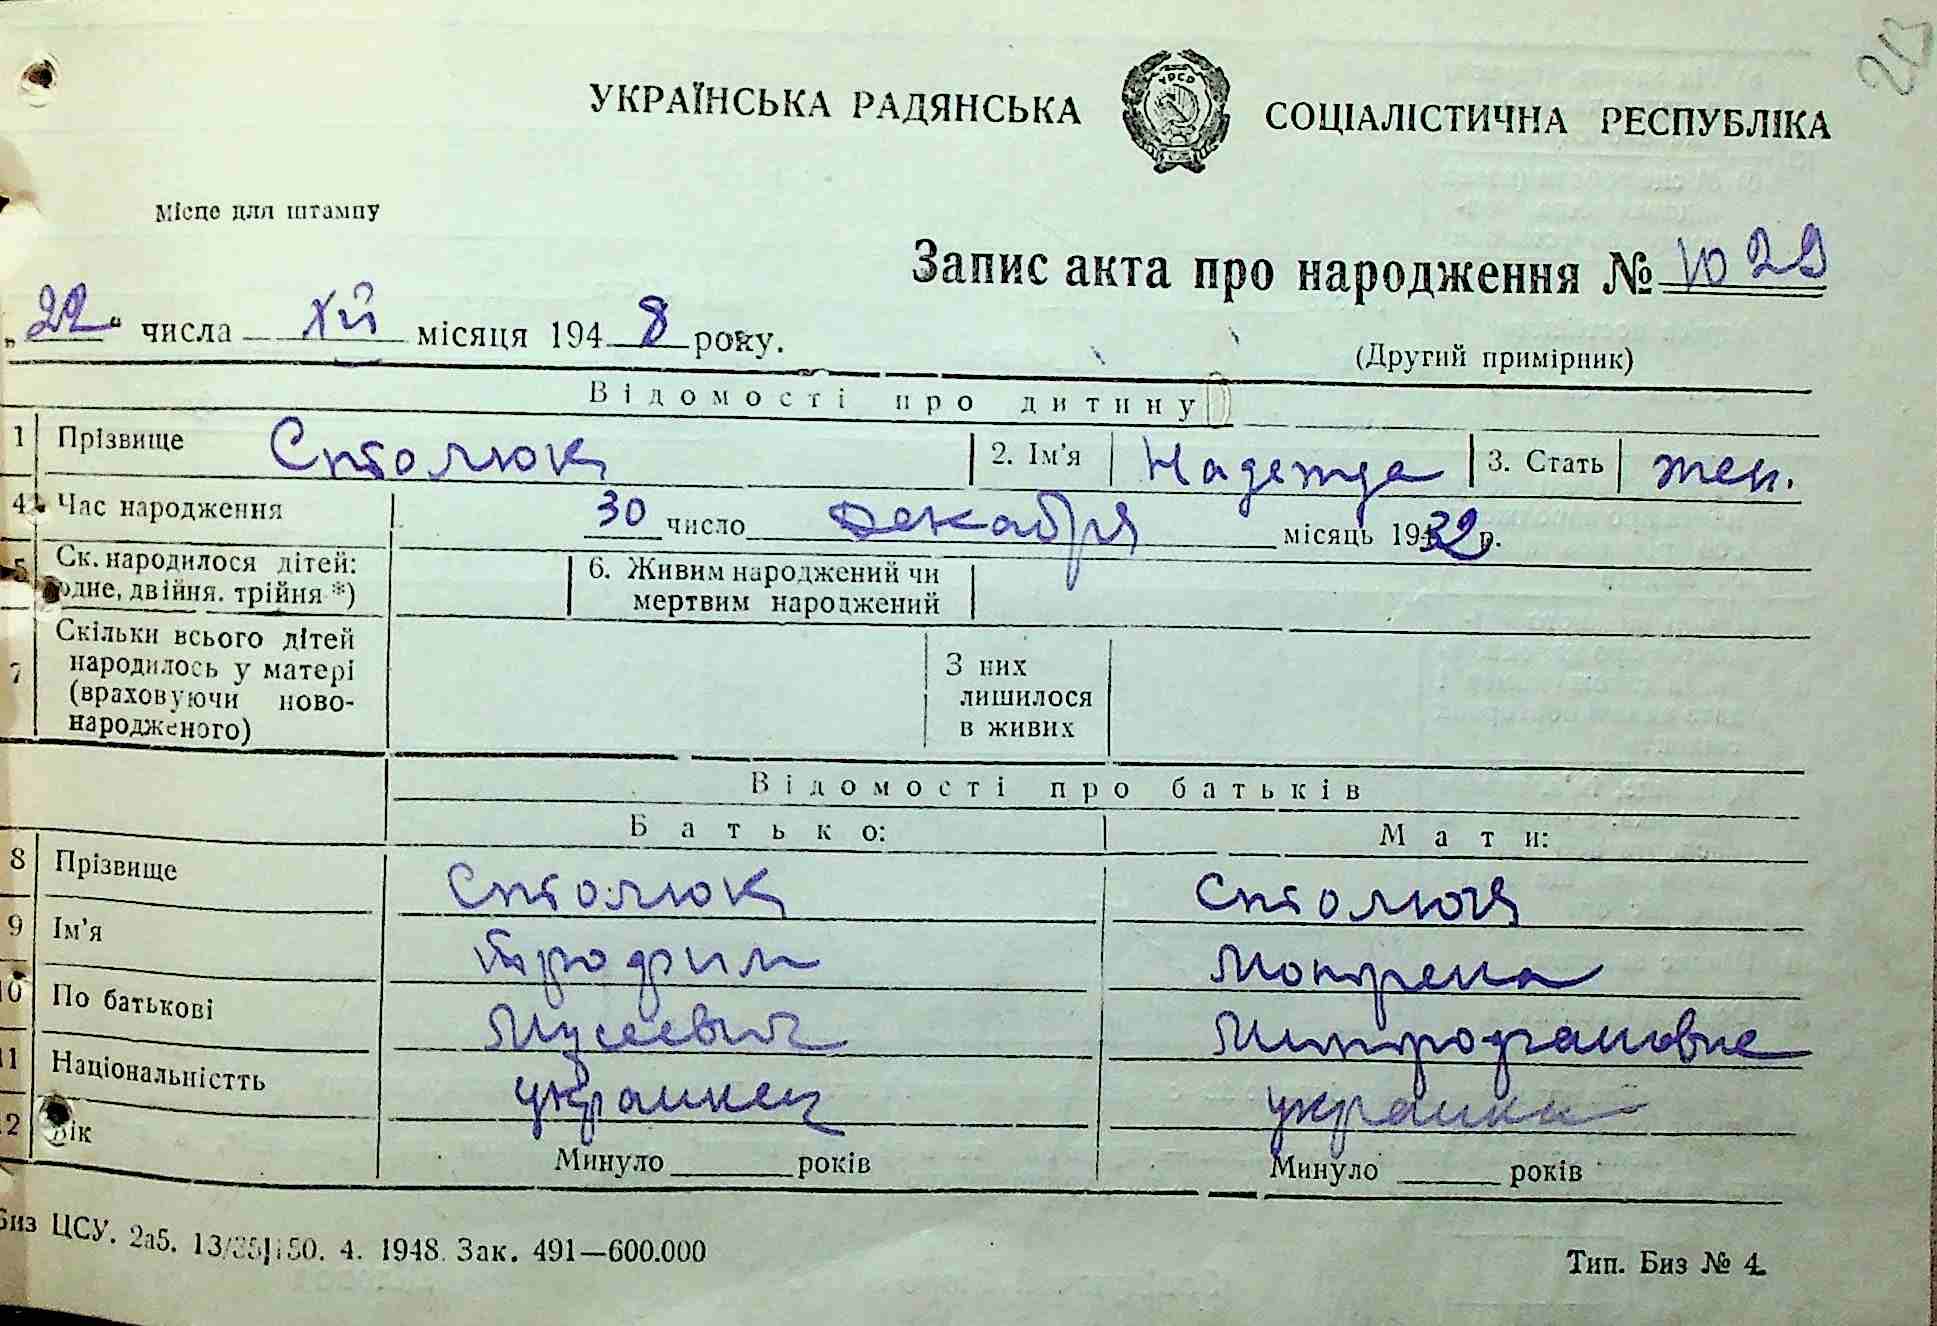 УКРАЇНСЬКА РАДЯНСЬКА СОЦІАЛІСТИЧНА РЕСПУБЛІКА
УРСР
Місце для штампу
Запис акта про народження № 1029
„22“ числа XII місяця 1948 року.
(Другий примірник)
Відомості про дитину
1 Прізвище Столюк 2. Ім'я Надежда 3. Стать жен.
4 Час народження 30 число декабря місяць 1932 р.
5 Ск. народилося дітей: одне, двійня, трійня *) 6. Живим народжений чи мертвим народжений
7 Скільки всього дітей народилось у матері (враховуючи новонародженого) З них лишилося в живих
Відомості про батьків
Батько: Мати:
8 Прізвище Столюк Столюк
9 Ім'я Трофим Мокрена
10 По батькові Мусеевич Митрофановна
11 Національністть украинец украинка
12 Вік Минуло років Минуло років
Биз ЦСУ. 2а5. 4. 1948. Зак. 491—600.000
Тип. Биз № 4